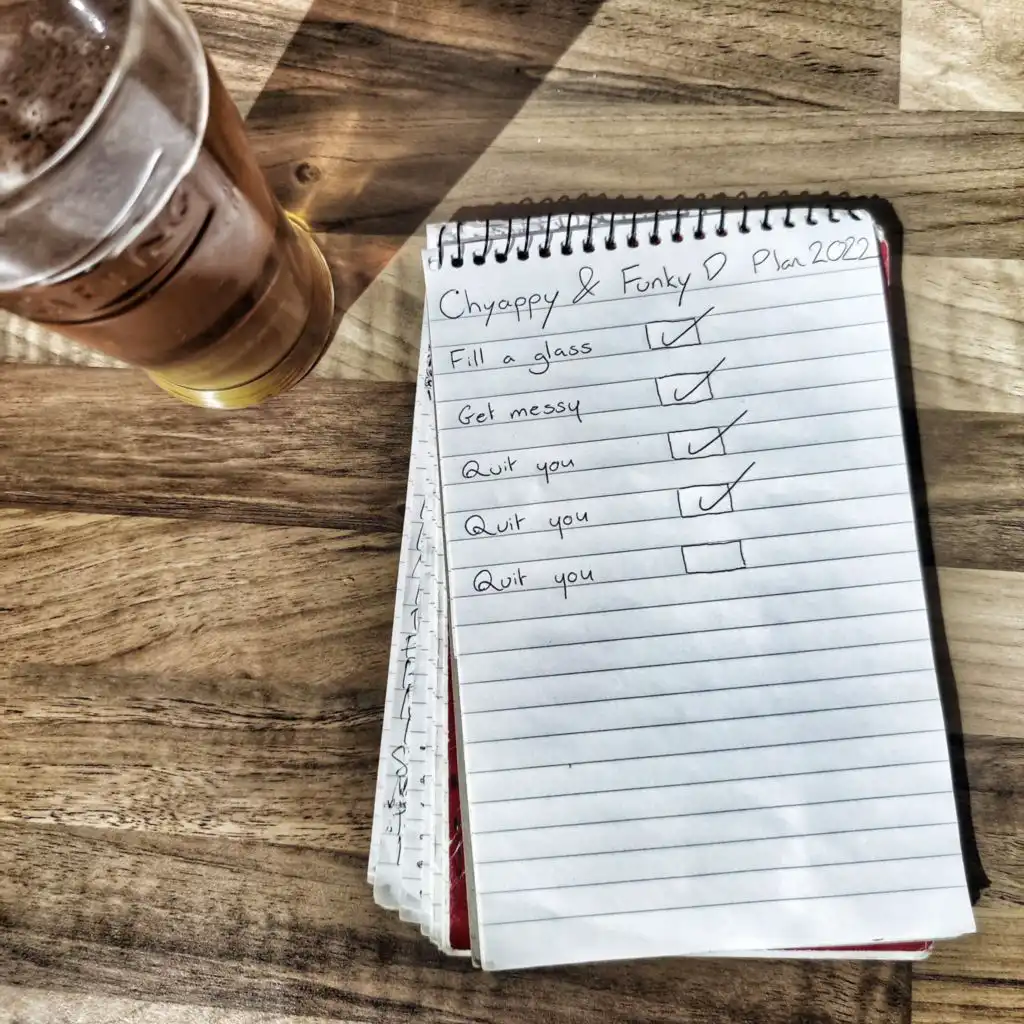 Chyappy & Funky D Plan 2022
Fill a glass
Get messy
Quit you
Quit you
Quit you